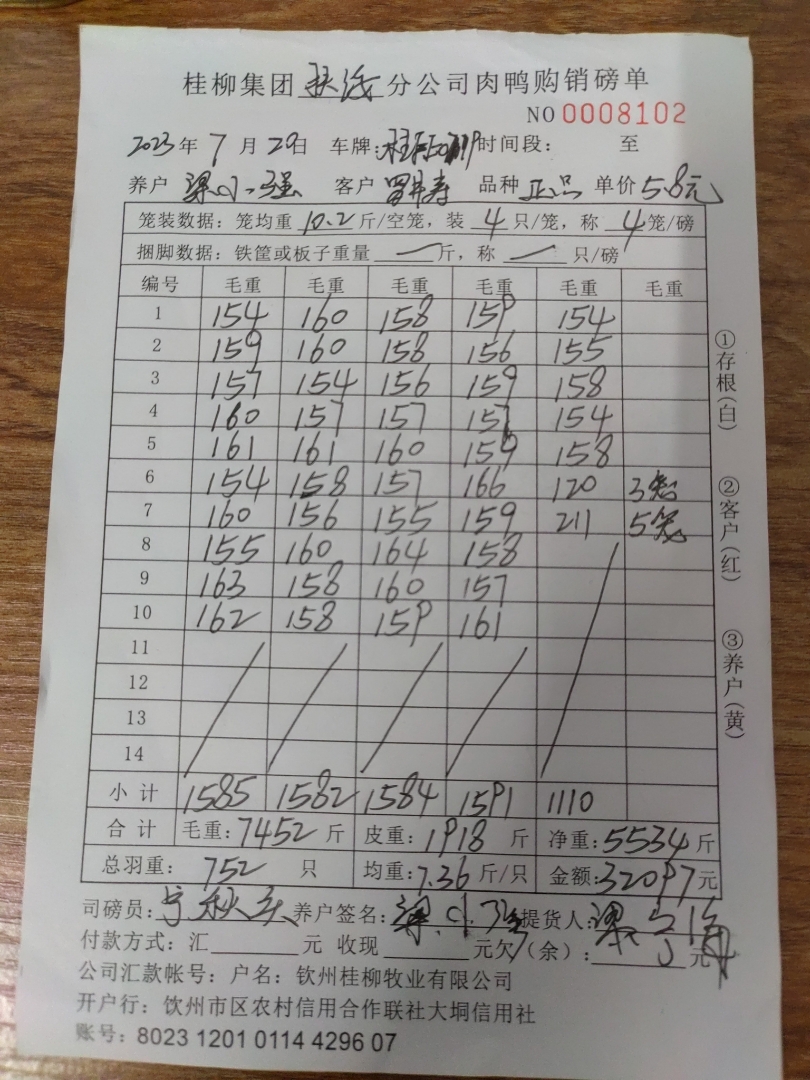 桂柳集团 扶绥 分公司肉鸭购销磅单
NO 0008102
2023年 7月 29日 车牌: 时间段： 至
养户 梁小强 客户 品种 正品 单价 5.8元
笼装数据：笼均重 10.2 斤/空笼，装 4 只/笼，称 4 笼/磅
捆脚数据：铁筐或板子重量 — 斤，称 — 只/磅
编号 毛重 毛重 毛重 毛重 毛重 毛重
1 154 160 158 159 154
2 159 160 158 156 155
3 157 154 156 159 158
4 160 157 157 157 154
5 161 161 160 159 158
6 154 158 157 166 120 3笼
7 160 156 155 159 211 5笼
8 155 160 164 158
9 163 158 160 157
10 162 158 159 161
11
12
13
14
小计 1585 1582 1584 1591 1110
合计 毛重: 7452 斤 皮重: 1918 斤 净重: 5534 斤
总羽重: 752 只 均重: 7.36 斤/只 金额: 32097元
司磅员: 养户签名: 梁小强 提货人:
付款方式：汇 元 收现 元欠（余）: 元
公司汇款帐号：户名：钦州桂柳牧业有限公司
开户行：钦州市区农村信用合作联社大垌信用社
账号：8023 1201 0114 4296 07
①存根(白)
②客户(红)
③养户(黄)